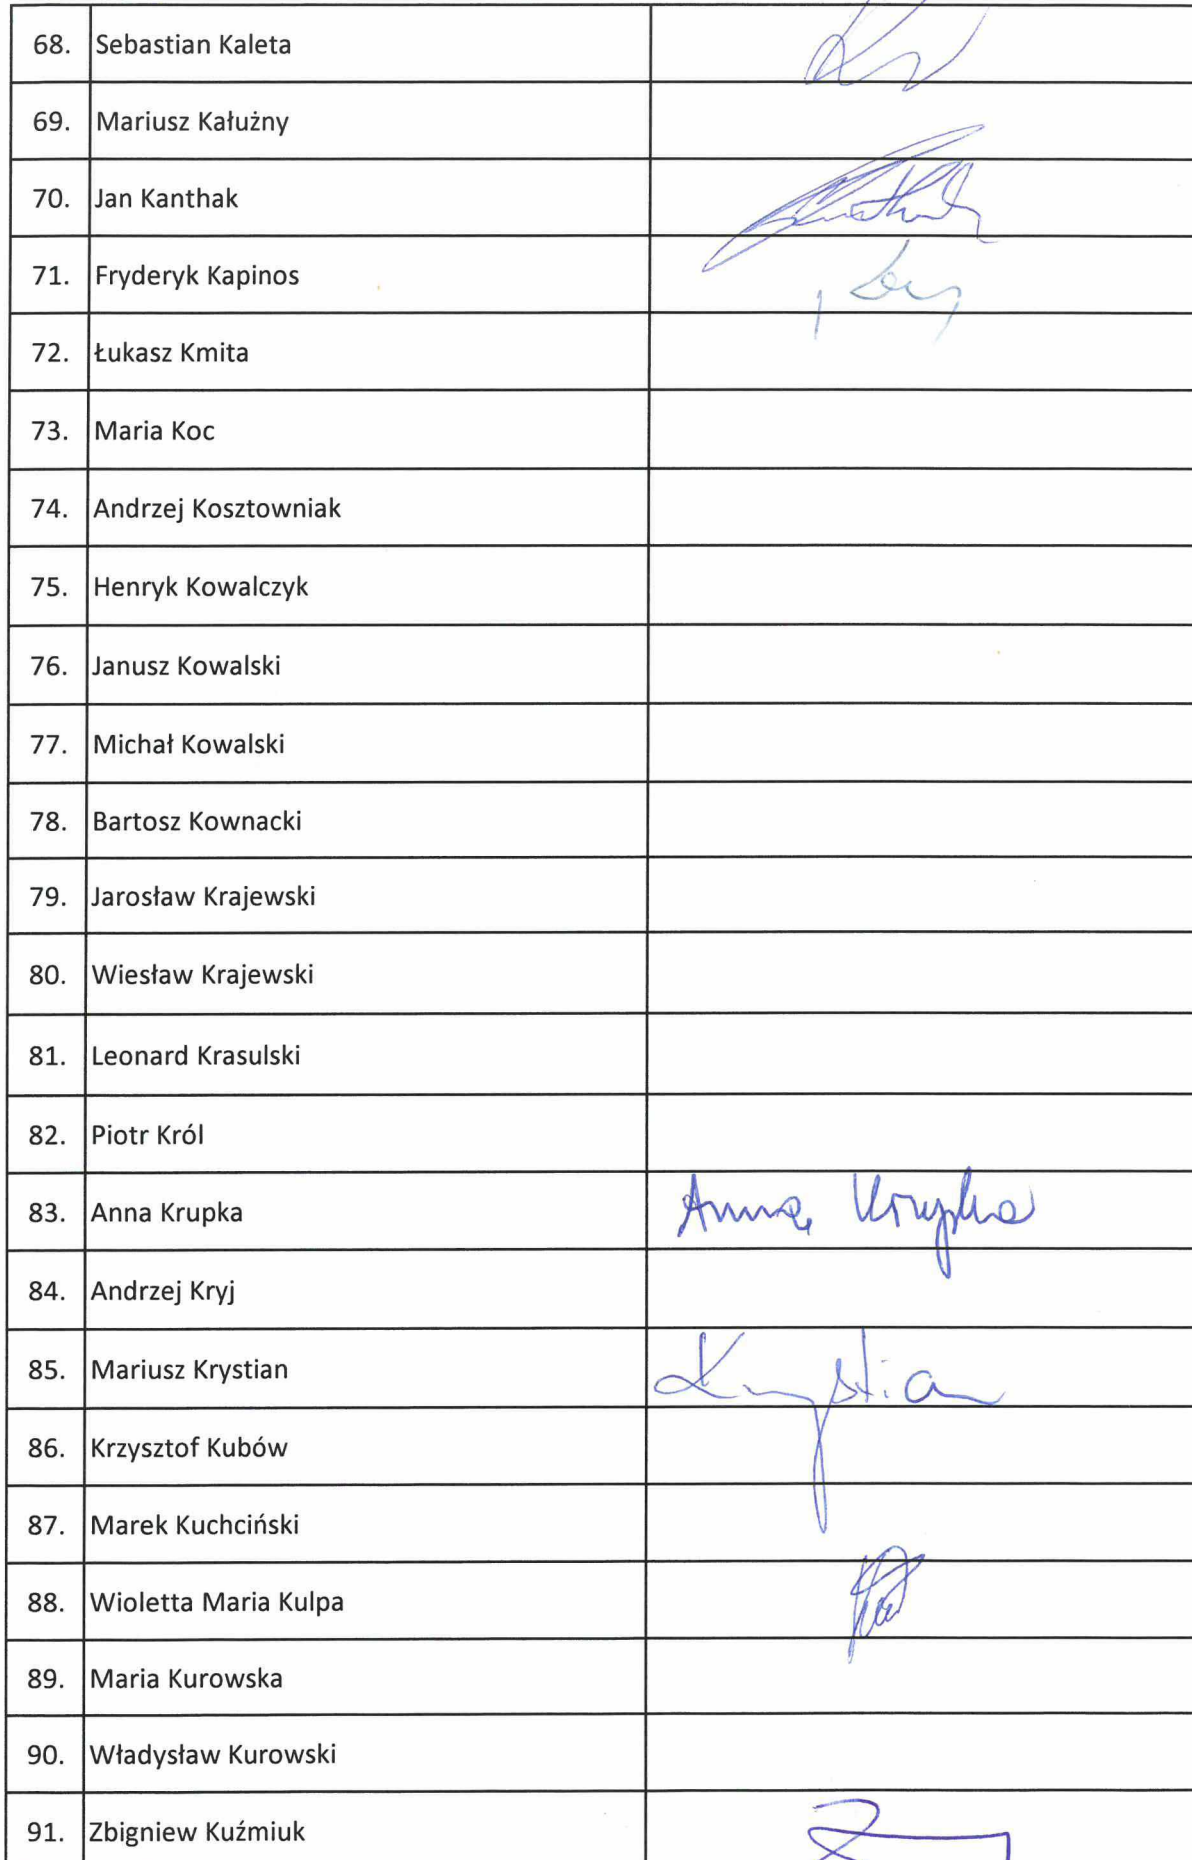 68. Sebastian Kaleta
69. Mariusz Kałużny
70. Jan Kanthak
71. Fryderyk Kapinos
72. Łukasz Kmita
73. Maria Koc
74. Andrzej Kosztowniak
75. Henryk Kowalczyk
76. Janusz Kowalski
77. Michał Kowalski
78. Bartosz Kownacki
79. Jarosław Krajewski
80. Wiesław Krajewski
81. Leonard Krasulski
82. Piotr Król
83. Anna Krupka Anna Krupka
84. Andrzej Kryj
85. Mariusz Krystian Krystian
86. Krzysztof Kubów
87. Marek Kuchciński
88. Wioletta Maria Kulpa
89. Maria Kurowska
90. Władysław Kurowski
91. Zbigniew Kuźmiuk